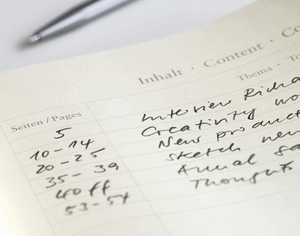 Inhalt · Content · Co
Seiten / Pages
Thema · To
5 Interview Richa
10-14 Creativity wo
20-25 New product
35-39 Sketch new
40 ff Annual sa
53-54 Thoughts